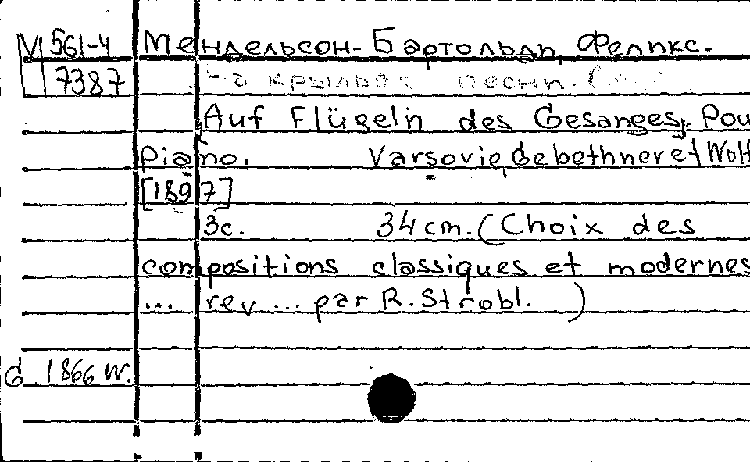 М 561-4 Мендельсон-Бартольди, Феликс.
7387 На крыльях песни. (
Auf Flügeln des Gesanges. Pou
Piano. Varsovie, Gebethner et Wolf
[1897]
3с. 34 cm. (Choix des
compositions classiques et modernes
... rev ... par R. Strobl. )
G. 1866 W.